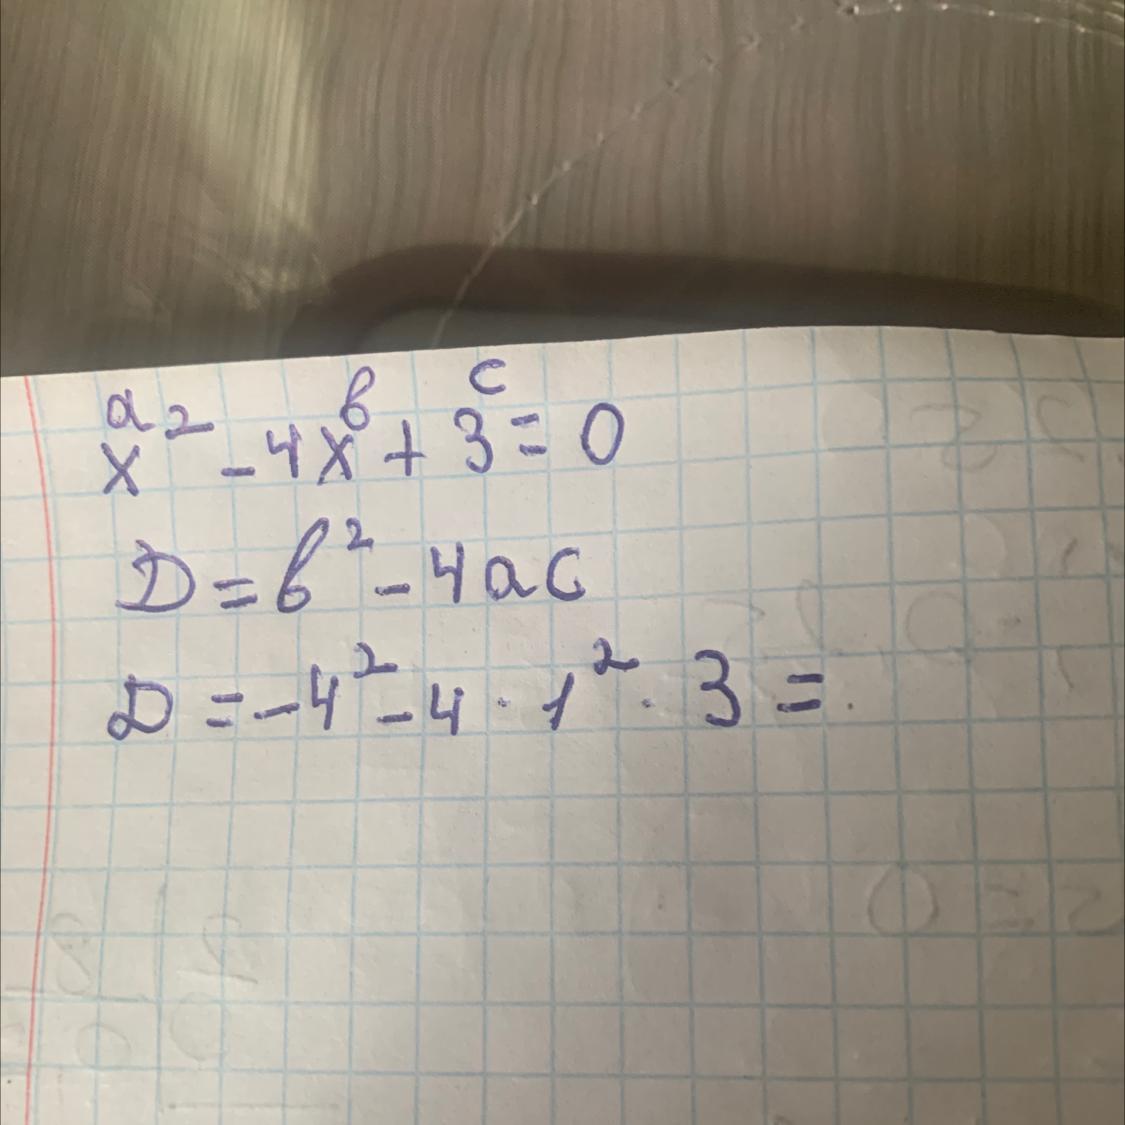 a b c
x² - 4x + 3 = 0
D = b² - 4ac
D = -4² - 4 · 1² · 3 =